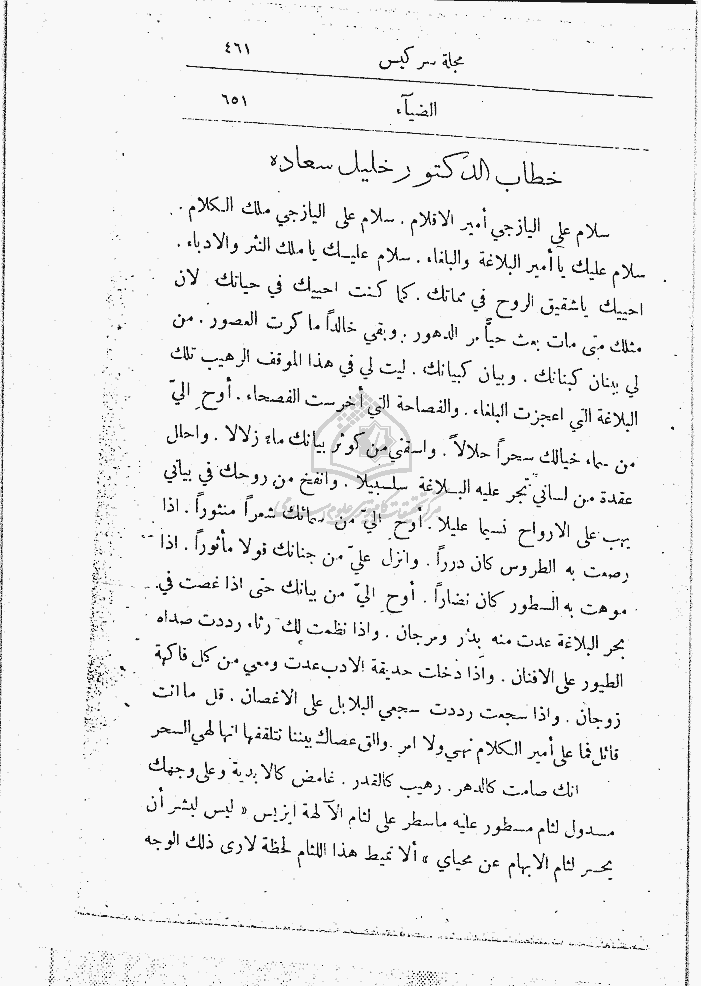 مجلة سركيس ٤٦١
الضيآء ٦٥١
خطاب الدكتور خليل سعاده
سلام على اليازجي أمير الاقلام . سلام على اليازجي ملك الكلام .
سلام عليك يا أمير البلاغة والبلغاء . سلام عليك يا ملك النثر والادباء .
احييك ياشقيق الروح في مماتك . كما كنت احييك في حياتك لان
مثلك متى مات بعث حياً مر الدهور . وبقي خالداً ما كرت العصور . من
لي ببنان كبنانك . وبيان كبيانك . ليت لي في هذا الموقف الرهيب تلك
البلاغة التي اعجزت البلغاء . والفصاحة التي أخرست الفصحاء . أوح اليّ
من سماء خيالك سحراً حلالاً . واسقني من كوثر بيانك ماءً زلالا . واحلل
عقدة من لساني تجر عليه البلاغة سلسبيلا . وانفخ من روحك في بياني
يهب على الارواح نسيما عليلا . أوح اليّ من سمائك شعراً منثوراً . اذا
رصعت به الطروس كان درراً . وانزل عليّ من جنانك قولا مأثوراً . اذا
موهت به السطور كان نضاراً . أوح اليّ من بيانك حتى اذا غصت في
بحر البلاغة عدت منه بدُر ومرجان . واذا نظمت لك رثاء رددت صداه
الطيور على الافنان . واذا دخلت حديقة الادب عدت ومعي من كل فاكهة
زوجان . واذا سجعت رددت سجعي البلابل على الاغصان . قل ما انت
قائل فما على أمير الكلام نهي ولا امر . والق عصاك بيننا تتلقفها انها لهي السحر
انك صامت كالدهر . رهيب كالقدر . غامض كالابدية وعلى وجهك
مسدول لثام مسطور عليه ما سطر على لثام الآلهة ايزيس « ليس لبشر أن
يحسر لثام الابهام عن محياي » ألا تميط هذا اللثام لحظة لارى ذلك الوجه